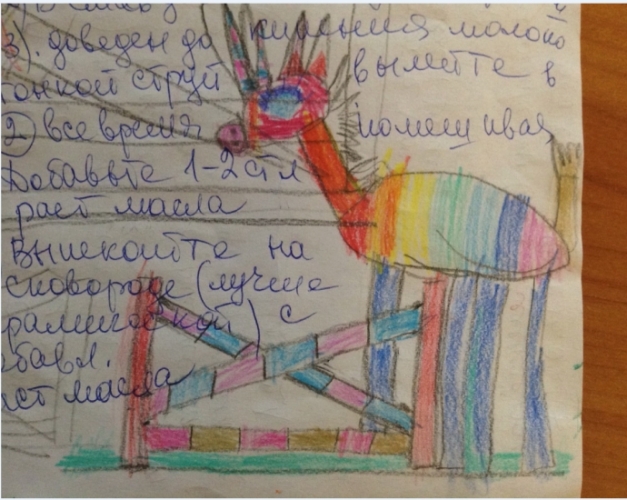 3). доведён до кипения молоко
тонкой струй вылейте в
2) все время помешивая
Добавьте 1-2 ст л
раст масла
Выпекайте на
сковороде (лучше
) с
добавл.
раст масла